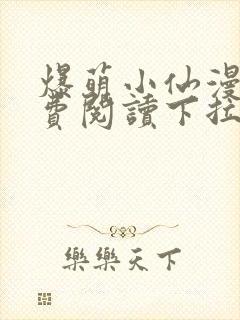 爆萌小仙漫
費閱讀下拉
樂樂天下